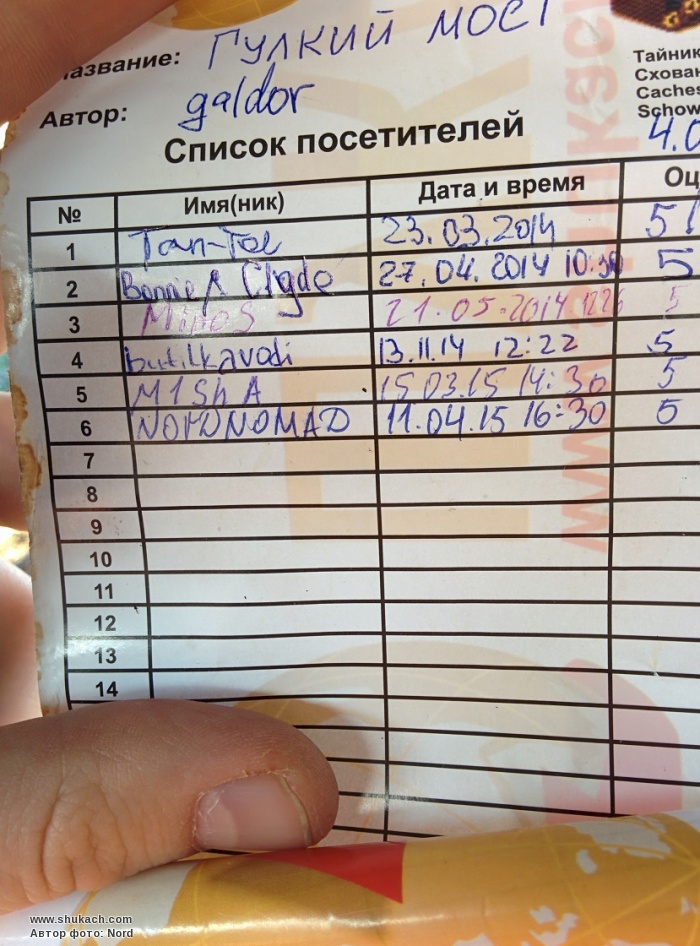 Название: Гулкий мост
Автор: galdor
Тайник
Схован
Caches
Schow
4.0
Список посетителей
№ Имя(ник) Дата и время Оц
1 Tan-Tol 23.03.2014 5
2 Bonnie & Clyde 27.04.2014 10:30 5
3 Minos 21.05.2014 5
4 butilkavodi 13.11.14 12:22 5
5 M1ShA 15.03.15 14:30 5
6 NORDNOMAD 11.04.15 16:30 5
7
8
9
10
11
12
13
14
www.shukach.com
Автор фото: Nord